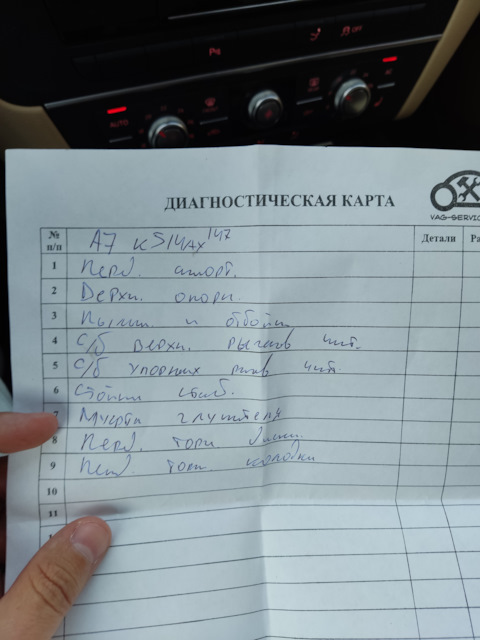 Pq
OFF
AUTO
AC
ДИАГНОСТИЧЕСКАЯ КАРТА
VAG-SERVIC
№ п/п А7 к514ах147 Детали Ра
1 Перд. аморт.
2 Верхн. опорн.
3 Пыльн. и отбойн
4 с/б верхн. рычагов 4шт.
5 с/б упорных рыч 4шт.
6 Стойки стаб.
7 Муфта глушителя
8 Перд. торм диски.
9 Перд. торм. колодки
10
11